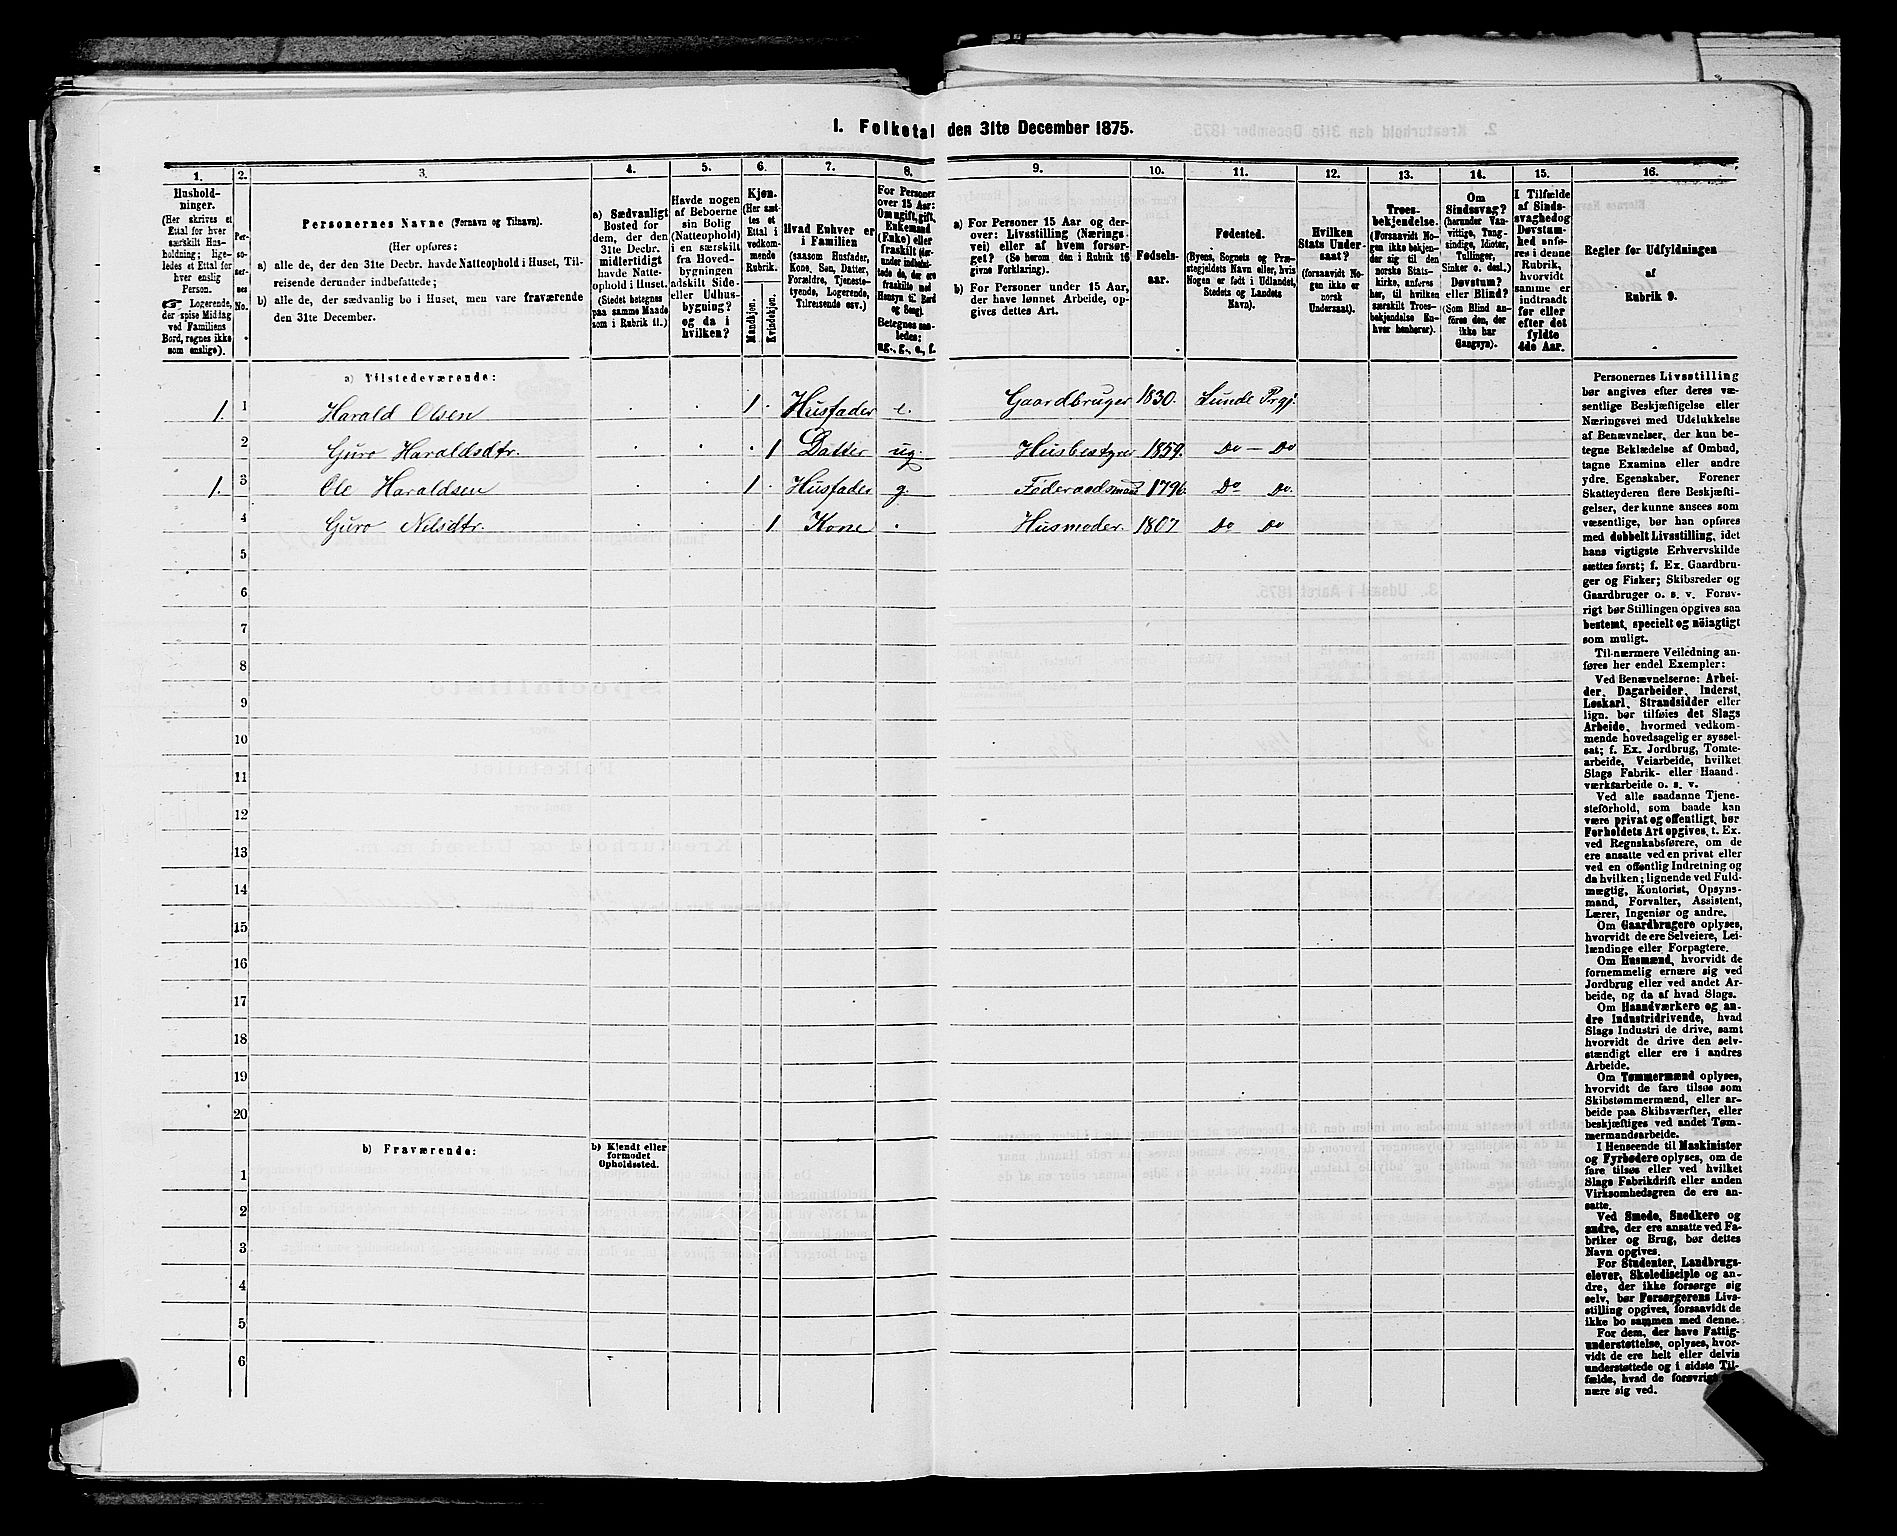 1. Folketal den 31te December 1875.
1.
2.
3.
4.
5.
6.
7.
8.
9.
10.
11.
12.
13.
14.
15.
16.
Hushold-
ninger.
(Her skrives et
Ettal for hver
særskilt Hus-
holdning; lige-
ledes et Ettal for
hver enslig
Person.
☞ Logerende,
der spise Middag
ved Familiens
Bord, regnes ikke
som enslige).
Per-
so-
ner-
nes
No.
Personernes Navne (Fornavn og Tilnavn).
(Her opføres:
a) alle de, der den 31te Decbr. havde Natteophold i Huset, Til-
reisende derunder indbefattede;
b) alle de, der sædvanlig bo i Huset, men vare fraværende
den 31te December.
a) Sædvanligt
Bosted for
dem, der den
31te Decbr.
midlertidigt
havde Natte-
ophold i Huset.
(Stedet betegnes
paa samme Maade
som i Rubrik 11.)
Havde nogen
af Beboerne
sin Bolig
(Natteophold)
i en særskilt
fra Hoved-
bygningen
adskilt Side-
eller Udhus-
bygning?
og da i
hvilken?
Kjøn.
(Her sæt-
tes et
Ettal i
vedkom-
mende
Rubrik.
Mandkjøn.
Kvindekjøn.
Hvad Enhver er
i Familien
(saasom Husfader,
Kone, Søn, Datter,
Forældre, Tjeneste-
tyende, Logerende,
Tilreisende osv.)
For Personer
over 15 Aar:
Om ugift, gift,
Enkemand
(Enke) eller
fraskilt (der-
under indbefat-
tede de, der ere
fraskilte med
Hensyn til Bord
og Seng).
Betegnes saa-
ledes:
ug., g., e., f.
a) For Personer 15 Aar og der-
over: Livsstilling (Nærings-
vei) eller af hvem forsør-
get? (Se herom den i Rubrik 16
givne Forklaring).
b) For Personer under 15 Aar,
der have lønnet Arbeide, op-
gives dettes Art.
Fødsels-
aar.
Fødested.
(Byens, Sognets og Præ-
stegjeldets Navn eller, hvis
Nogen er født i Udlandet,
Stedets og Landets
Navn).
Hvilken
Stats Under-
saat?
(forsaavidt No-
gen ikke er
norsk
Undersaat).
Troes-
bekjendelse.
(Forsaavidt No-
gen ikke bekjen-
der sig til den
norske Stats-
kirke, anføres
her, til hvilken
særskilt Troes-
bekjendelse En-
hver henhører).
Om
Sindssvag?
(herunder Van-
vittige, Tung-
sindige, Idioter,
Tullinger,
Sinker o. desl.)
Døvstum?
eller Blind?
(Som Blind an-
føres den, der
ikke har
Gangsyn).
I Tilfælde
af Sinds-
svaghed og
Døvstum-
hed anfø-
res i denne
Rubrik,
hvorvidt
samme er
indtraadt
før eller
efter det
fyldte
4de Aar.
Regler for Udfyldningen
af
Rubrik 9.
a) Tilstedeværende:
1. 1 Harald Olsen 1. Husfader e. Gaardbruger 1830. Lunde Prgj.
2 Guro Haraldsdtr. 1 Datter ug Husbestyrer 1859. Do — Do
1. 3 Ole Haraldsen 1. Husfader g. Føderaadsmand 1796. Do Do.
4 Guro Nilsdtr. 1 Kone . Husmoder. 1807 Do Do
5
6
7
8
9
10
11
12
13
14
15
16
17
18
19
20
b) Fraværende:
b) Kjendt eller
formodet
Opholdssted.
1
2
3
4
5
6
Personernes Livsstilling
bør angives efter deres væ-
sentlige Beskjæftigelse eller
Næringsvei med Udelukkelse
af Benævnelser, der kun be-
tegne Beklædelse af Ombud,
tagne Examina eller andre
ydre. Egenskaber. Forener
Skatteyderen flere Beskjæfti-
gelser, der kunne ansees som
væsentlige, bør han opføres
med dobbelt Livsstilling, idet
hans vigtigste Erhvervskilde
sættes først; f. Ex. Gaardbru-
ger og Fisker; Skibsreder og
Gaardbruger o. s. v. Forøv-
rigt bør Stillingen opgives saa
bestemt, specielt og nöiagtigt
som muligt.
Til nærmere Veiledning an-
føres her endel Exempler:
Ved Benævnelserne: Arbei-
der, Dagarbeider, Inderst,
Løskarl, Strandsidder eller
lign. bør tilføies det Slags
Arbeide, hvormed vedkom-
mende hovedsagelig er syssel-
sat; f. Ex. Jordbrug, Tomte-
arbeide, Veiarbeide, hvilket
Slags Fabrik- eller Haand-
værksarbeide o. s. v.
Ved alle saadanne Tjene-
steforhold, som baade kan
være privat og offentligt, bør
Forholdets Art opgives, t. Ex.
ved Regnskabsførere, om de
ere ansatte ved en privat eller
ved en offentlig Indretning og
da hvilken; lignende ved Fuld-
mægtig, Kontorist, Opsyns-
mand, Forvalter, Assistent,
Lærer, Ingeniør og andre.
Om Gaardbrugere oplyses,
hvorvidt de ere Selveiere, Lei-
lændinge eller Forpagtere.
Om Husmænd, hvorvidt de
fornemmelig ernære sig ved
Jordbrug eller ved andet Ar-
beide, og da af hvad Slags.
Om Haandværkere og an-
dre Industridrivende, hvad
Slags Industri de drive, samt
hvorvidt de drive den selv-
stændigt eller ere i andres
Arbeide.
Om Tømmermænd oplyses,
hvorvidt de fare tilsøs som
Skibstømmermænd, eller ar-
beide paa Skibsværfter, eller
beskjæftiges ved andet Tøm-
mermandsarbeide.
I Henseende til Maskinister
og Fyrbødere oplyses, om de
fare tilsøs eller ved hvilket
Slags Fabrikdrift eller anden
Virksomhedsgren de ere an-
satte.
Ved Smede, Snedkere og
andre, der ere ansatte ved Fa-
briker og Brug, bør dettes
Navn opgives.
For Studenter, Landbrugs-
elever, Skoledisciple og an-
dre, der ikke forsørge sig
selv, bør Forsørgerens Livs-
stilling opgives, forsaavidt de
ikke bo sammen med denne.
For dem, der have Fattig-
understøttelse, oplyses, hvor-
vidt de ere helt eller delvis
understøttede og i sidste Til-
fælde, hvad de forøvrigt
nære sig ved.